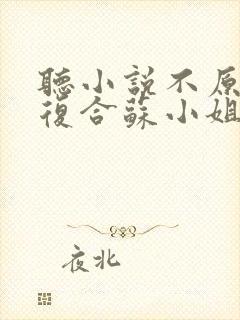 聽小說不原
復合蘇小姐
夜北